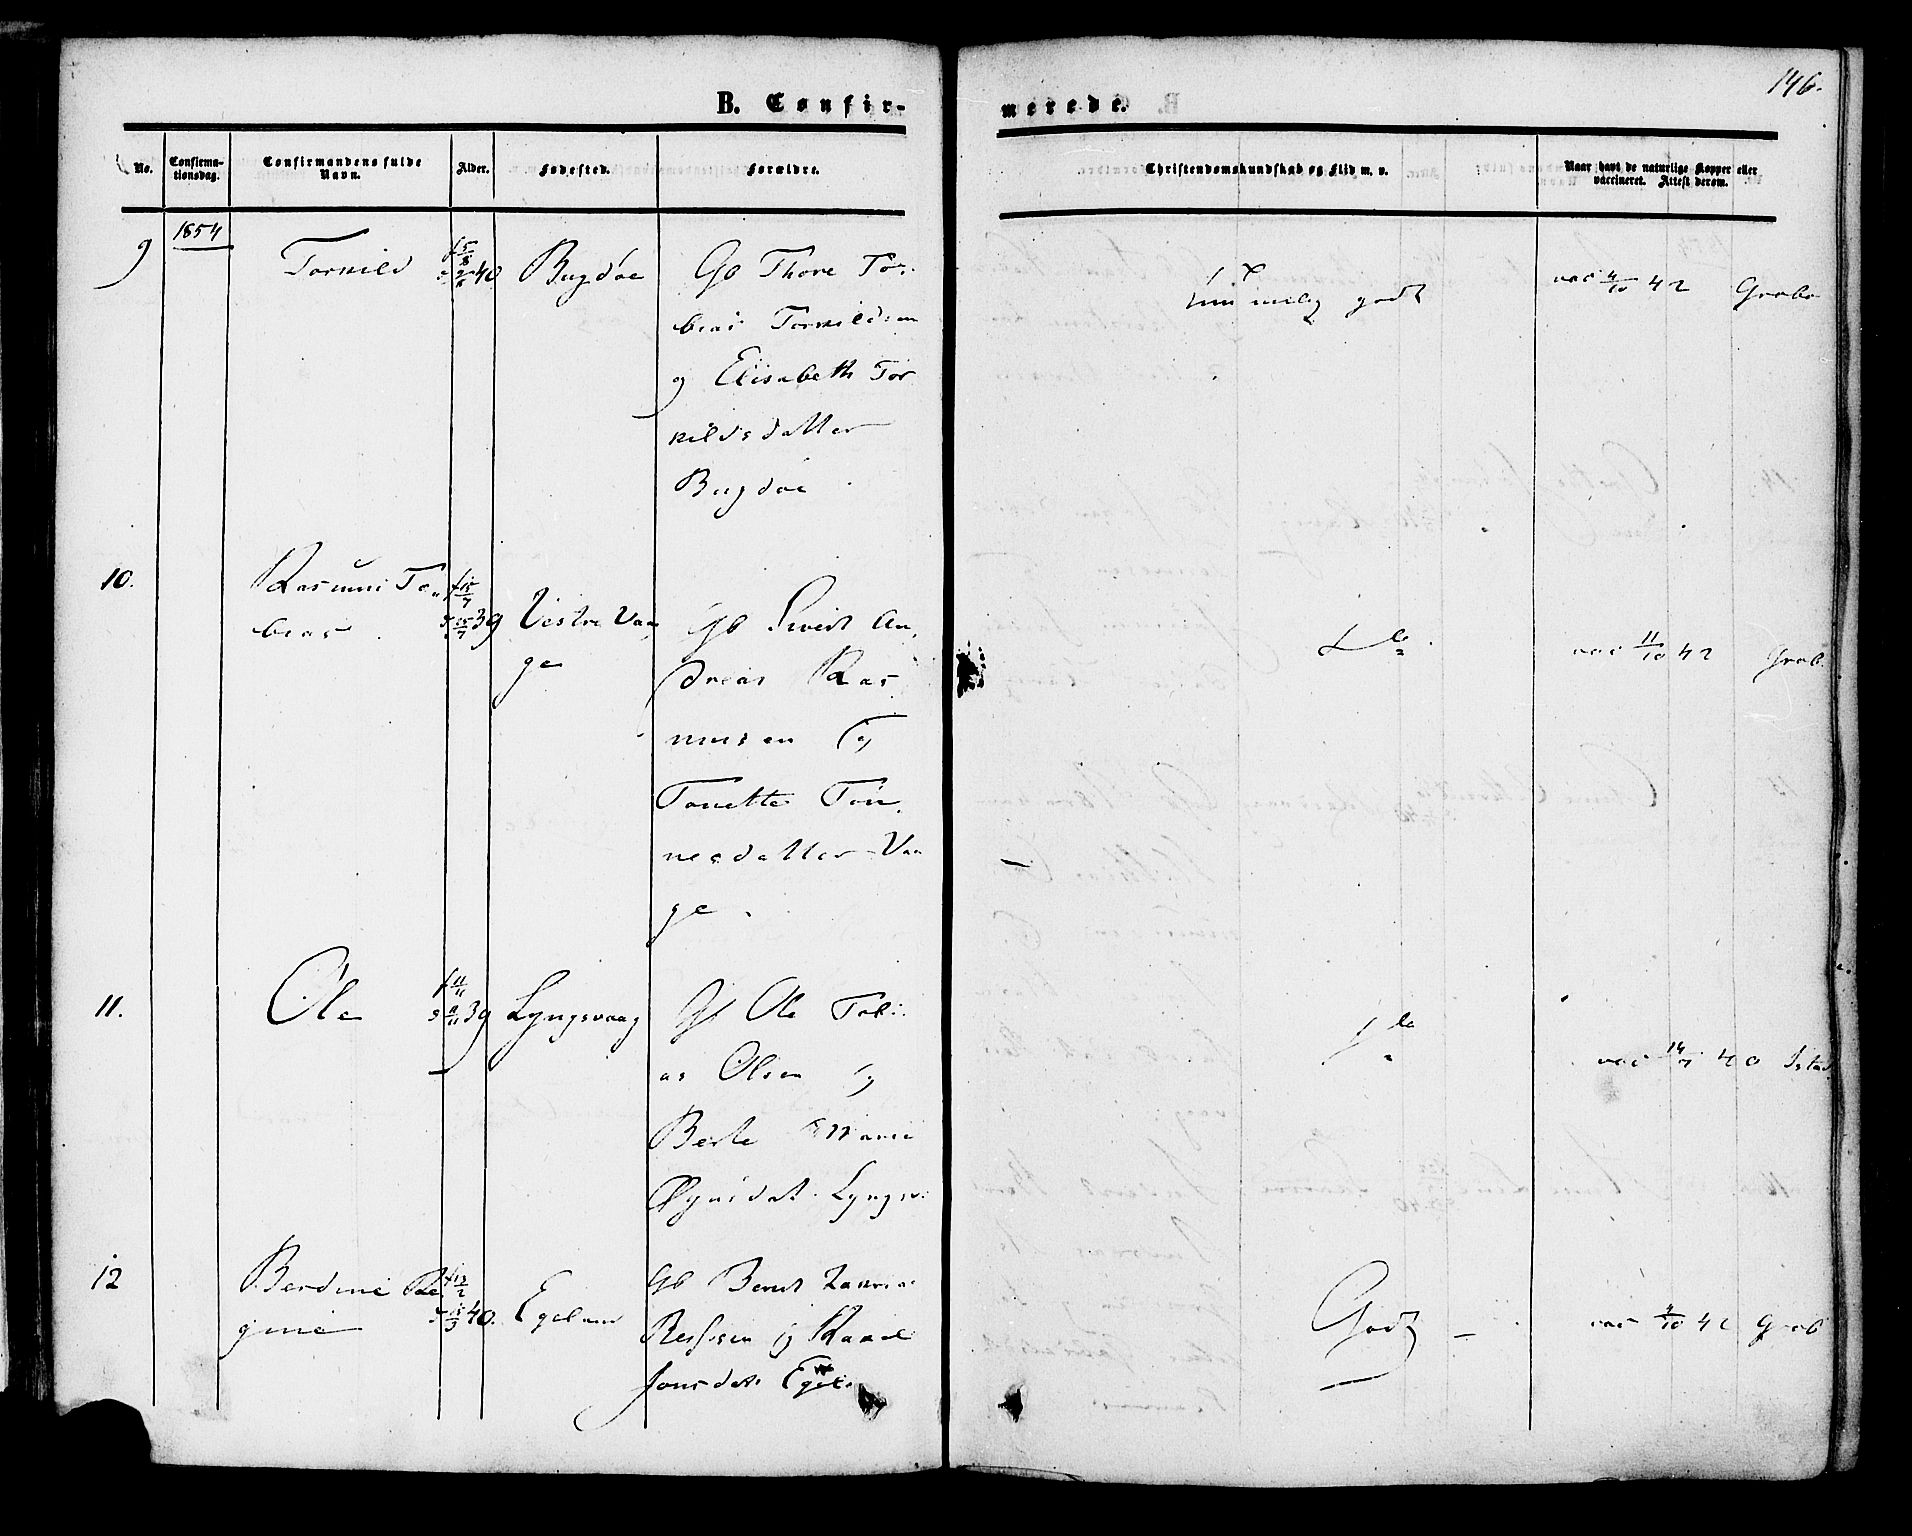 146.
B. Confir-
merede.
No.
Confirma-
tionsdag.
Confirmandens fulde
Navn.
Alder.
Fødested.
Forældre.
Christendomskundskab og Flid m. v.
Naar havt de naturlige Kopper eller
vaccineret. Attest derom.
1854
9 Torkild f 5/8 40 Bugdøe Gb Thore To-
bias Torkildsen
og Elisabeth Tor
kildsdatter
Bugdøe
godt
vac 4/10 42 Grobe
10. Rasmus To-
bias
39 Vestre Vaa
ge
Gb Sivert An-
dreas Ras
musen og
Tonette Tøn-
nesdatter Vaa
ge.
vac 11/10 42 Grob
11. Ole f 11/11 39 Lyngsvaag Gb Ole Tobi-
as Olsen og
Berte Marie
Lyngsv:
vac 14/7 40
12 Berdine Re
gine
40. Egeland
Gb Bernt
og
Jonsdat. Egel.
Godt
vac 4/10 42 Grob